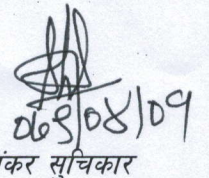 ०६९/०४/०१
ंकर सुचिकार